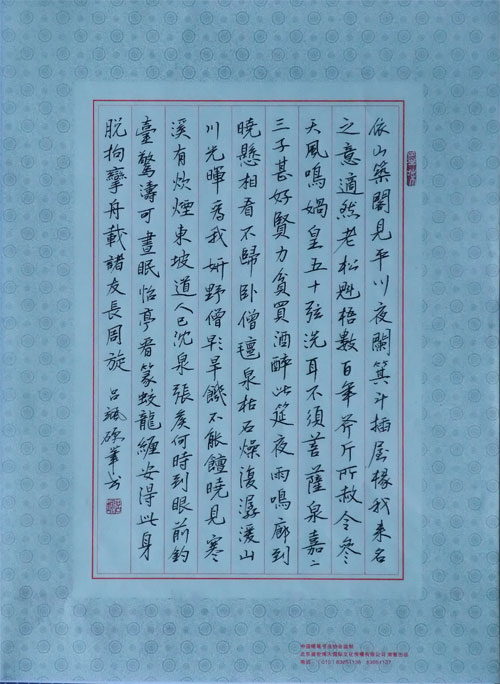 依山築閣見平川夜闌箕斗插屋椽我来名
之意適然老松魁梧數百年斧斤所赦今參
天風鳴媧皇五十弦洗耳不須菩薩泉嘉二
三子甚好賢力貧買酒醉此筵夜雨鳴廊到
曉懸相看不歸卧僧氈泉枯石燥復潺湲山
川光暉為我妍野僧旱饑不能饘曉見寒
溪有炊煙東坡道人已沈泉張侯何時到眼前釣
臺驚濤可晝眠怡亭看篆蛟龍纏安得此身
脱拘攣舟載諸友長周旋 吕
中国硬笔书法协会监制